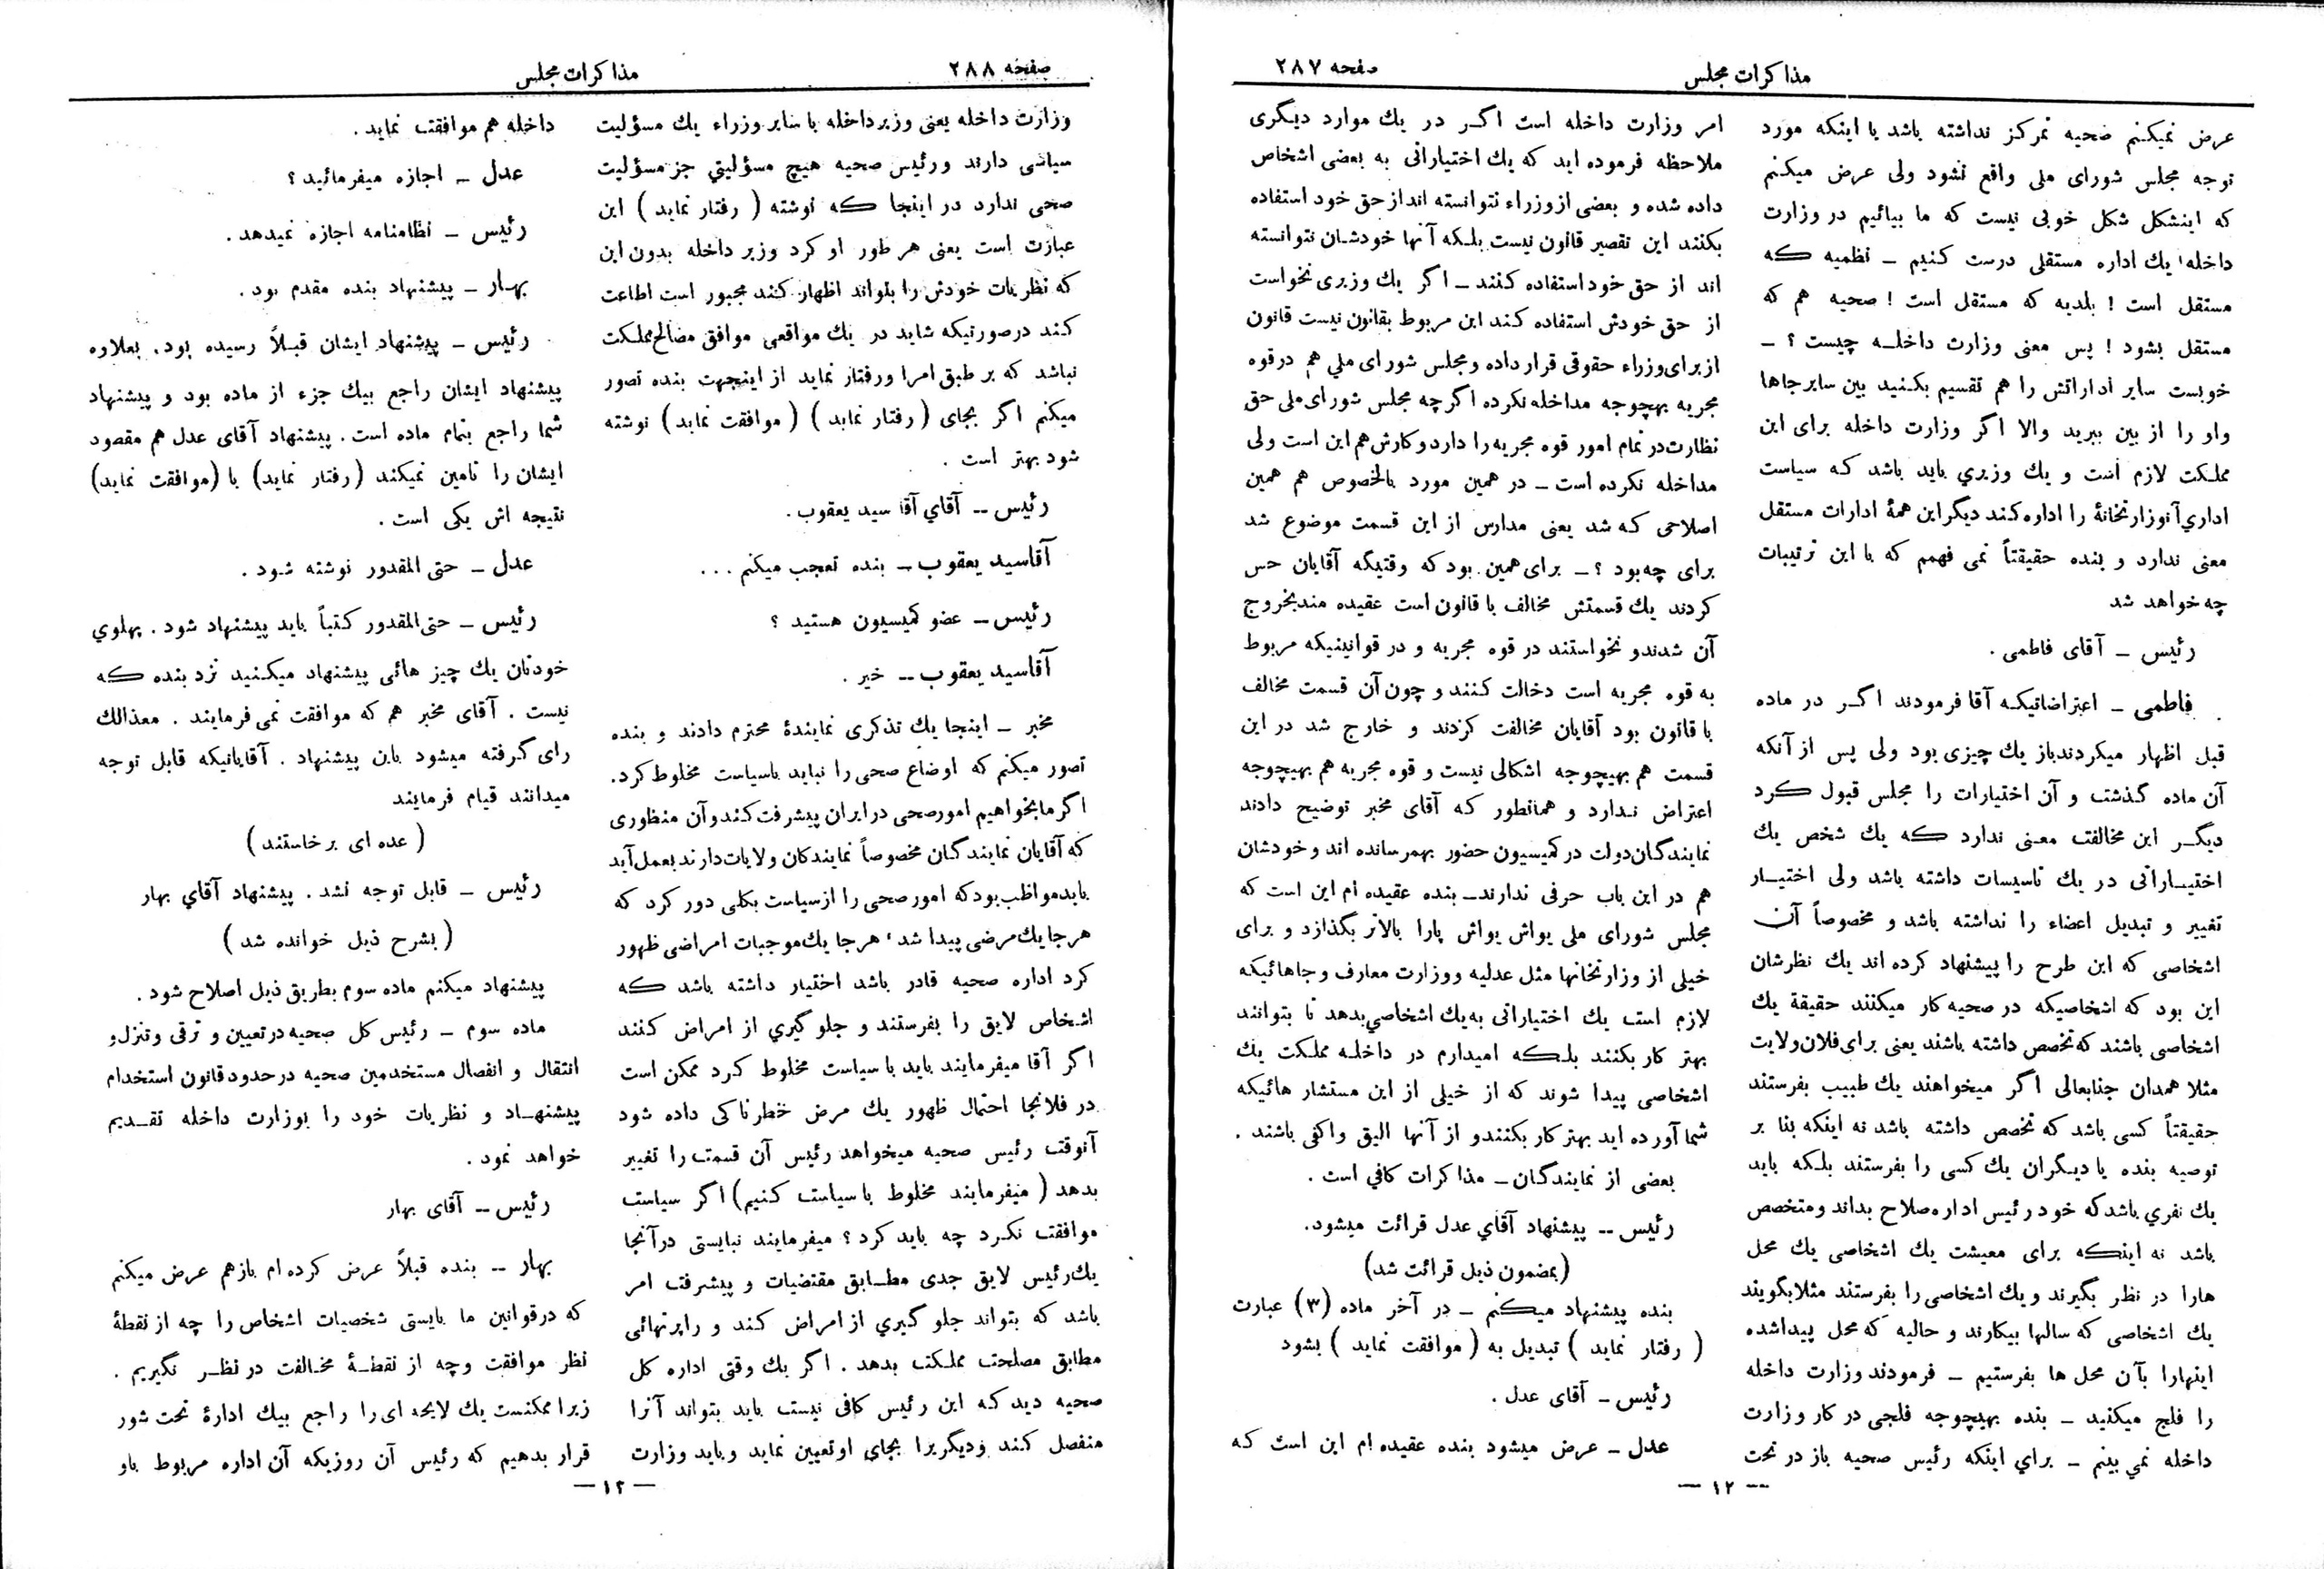 مذاکرات مجلس
صفحه ۲۸۷
عرض نمیکنم صحیه تمرکز نداشته باشد یا اینکه مورد
توجه مجلس شورای ملی واقع نشود ولی عرض میکنم
که اینشکل شکل خوبی نیست که ما بیائیم در وزارت
داخله یك اداره مستقلی درست کنیم ـ نظمیه که
مستقل است ! بلدیه که مستقل است ! صحیه هم که
مستقل بشود ! پس معنی وزارت داخله چیست ؟ ـ
خوبست سایر اداراتش را هم تقسیم بکنید بین سایر جاها
واو را از بین ببرید والا اگر وزارت داخله برای این
مملکت لازم است و یك وزیري باید باشد که سیاست
اداري آنوزارتخانهٔ را اداره کند دیگر این همهٔ ادارات مستقل
معنی ندارد و بنده حقیقتاً نمی فهمم که با این ترتیبات
چه خواهد شد
رئیس ـ آقای فاطمی .
فاطمی ـ اعتراضاتیکه آقا فرمودند اگر در ماده
قبل اظهار میکردند باز یك چیزی بود ولی پس از آنکه
آن ماده گذشت و آن اختیارات را مجلس قبول کرد
دیگر این مخالفت معنی ندارد که یك شخص یك
اختیاراتی در یك تاسیسات داشته باشد ولی اختیار
تغییر و تبدیل اعضاء را نداشته باشد و مخصوصاً آن
اشخاصی که این طرح را پیشنهاد کرده اند یك نظرشان
این بود که اشخاصیکه در صحیه کار میکنند حقیقة یك
اشخاصی باشند که تخصص داشته باشند یعنی برای فلان ولایت
مثلا همدان جنابعالی اگر میخواهند یك طبیب بفرستند
حقیقتاً کسی باشد که تخصص داشته باشد نه اینکه بنا بر
توصیه بنده یا دیگران یك کسی را بفرستند بلکه باید
یك نفري باشد که خود رئیس اداره صلاح بداند و متخصص
باشد نه اینکه برای معیشت یك اشخاصی یك محل
هارا در نظر بگیرند و یك اشخاصی را بفرستند مثلا بگویند
یك اشخاصی که سالها بیکارند و حالیه که محل پیدا شده
اینهارا بآن محل ها بفرستیم ـ فرمودند وزارت داخله
را فلج میکنید ـ بنده بهیچوجه فلجی در کار وزارت
داخله نمي بینم ـ براي اینکه رئیس صحیه باز در تحت
امر وزارت داخله است اگر در یك موارد دیگری
ملاحظه فرموده اید که یك اختیاراتی به بعضی اشخاص
داده شده و بعضی از وزراء نتوانسته اند از حق خود استفاده
بکنند این تقصیر قانون نیست بلکه آنها خودشان نتوانسته
اند از حق خود استفاده کنند ـ اگر یك وزیری نخواست
از حق خودش استفاده کند این مربوط بقانون نیست قانون
از برای وزراء حقوقی قرار داده و مجلس شورای ملي هم در قوه
مجریه بهیچوجه مداخله نکرده اگرچه مجلس شورای ملی حق
نظارت در تمام امور قوه مجریه را دارد و کارش هم این است ولی
مداخله نکرده است ـ در همین مورد بالخصوص هم همین
اصلاحی که شد یعنی مدارس از این قسمت موضوع شد
برای چه بود ؟ ـ برای همین بود که وقتیگه آقایان حس
کردند یك قسمتش مخالف با قانون است عقیده مند بخروج
آن شدند و نخواستند در قوه مجریه و در قوانینیکه مربوط
به قوه مجریه است دخالت کنند و چون آن قسمت مخالف
با قانون بود آقایان مخالفت کردند و خارج شد در این
قسمت هم بهیچوجه اشکالی نیست و قوه مجریه هم بهیچوجه
اعتراض ندارد و همانطور که آقای مخبر توضیح دادند
نمایندگان دولت در کمیسیون حضور بهمرسانده اند و خودشان
هم در این باب حرفی ندارند ـ بنده عقیده ام این است که
مجلس شورای ملی یواش یواش پارا بالاتر بگذارد و برای
خیلی از وزارتخانها مثل عدلیه و وزارت معارف و جاهائیکه
لازم است یك اختیاراتی به یك اشخاصي بدهد تا بتوانند
بهتر کار بکنند بلکه امیدارم در داخله مملکت یك
اشخاصی پیدا شوند که از خیلی از این مستشار هائیکه
شما آورده اید بهتر کار بکنند و از آنها الیق و اکفی باشند .
بعضی از نمایندگان ـ مذاکرات کافي است .
رئیس ـ پیشنهاد آقاي عدل قرائت میشود.
(بمضمون ذیل قرائت شد)
بنده پیشنهاد میکنم ـ در آخر ماده (۳) عبارت
( رفتار نماید ) تبدیل به ( موافقت نماید ) بشود
رئیس ـ آقای عدل .
عدل ـ عرض میشود بنده عقیده ام این است که
— ۱۲ —
صفحه ۲۸۸
مذاکرات مجلس
وزارت داخله یعنی وزیر داخله با سایر وزراء یك مسؤلیت
سیاسی دارند و رئیس صحیه هیچ مسؤلیتي جز مسؤلیت
صحی ندارد در اینجا که نوشته ( رفتار نماید ) این
عبارت است یعنی هر طور او کرد وزیر داخله بدون این
که نظریات خودش را بتواند اظهار کند مجبور است اطاعت
کند در صورتیکه شاید در یك مواقعی موافق مصالح مملکت
نباشد که بر طبق امر او رفتار نماید از اینجهت بنده تصور
میکنم اگر بجای ( رفتار نماید ) ( موافقت نماید ) نوشته
شود بهتر است .
رئیس ـ آقاي آقا سید یعقوب .
آقاسید یعقوب ـ بنده تعجب میکنم ...
رئیس ـ عضو کمیسیون هستید ؟
آقاسید یعقوب ـ خیر .
مخبر ـ اینجا یك تذکری نمایندهٔ محترم دادند و بنده
تصور میکنم که اوضاع صحی را نباید باسیاست مخلوط کرد.
اگر ما بخواهیم امور صحی در ایران پیشرفت کند و آن منظوری
که آقایان نمایندگان مخصوصاً نمایندکان ولایات دارند بعمل آید
باید مواظب بود که امور صحی را از سیاست بکلی دور کرد که
هر جا یك مرضی پیدا شد ، هر جا یك موجبات امراضی ظهور
کرد اداره صحیه قادر باشد اختیار داشته باشد که
اشخاص لایق را بفرستند و جلوگیري از امراض کنند
اگر آقا میفرمایند باید با سیاست مخلوط کرد ممکن است
در فلانجا احتمال ظهور یك مرض خطرناکی داده شود
آنوقت رئیس صحیه میخواهد رئیس آن قسمت را تغییر
بدهد ( میفرمایند مخلوط با سیاست کنیم) اگر سیاست
موافقت نکرد چه باید کرد ؟ میفرمایند نبایستی در آنجا
یك رئیس لایق جدی مطابق مقتضیات و پیشرفت امر
باشد که بتواند جلو گیري از امراض کند و راپرتهائی
مطابق مصلحت مملکت بدهد . اگر یك وقتی اداره کل
صحیه دید که این رئیس کافی نیست باید بتواند آنرا
منفصل کند و دیگریرا بجاي او تعیین نماید و باید وزارت
داخله هم موافقت نماید .
عدل ـ اجازه میفرمائید ؟
رئیس ـ نظامنامه اجازه نمیدهد .
بهار ـ پیشنهاد بنده مقدم بود .
رئیس ـ پیشنهاد ایشان قبلاً رسیده بود. بعلاوه
پیشنهاد ایشان راجع بیك جزء از ماده بود و پیشنهاد
شما راجع بتمام ماده است . پیشنهاد آقای عدل هم مقصود
ایشان را تامین نمیکند ( رفتار نماید) با (موافقت نماید)
نتیجه اش یکی است .
عدل ـ حتی المقدور نوشته شود .
رئیس ـ حتی المقدور کتباً باید پیشنهاد شود . پهلوي
خودتان یك چیز هائی پیشنهاد میکنید نزد بنده که
نیست . آقای مخبر هم که موافقت نمی فرمایند . معذالك
رای گرفته میشود باین پیشنهاد . آقایانیکه قابل توجه
میدانند قیام فرمایند
( عده ای برخاستند )
رئیس ـ قابل توجه نشد . پیشنهاد آقاي بهار
( بشرح ذیل خوانده شد )
پیشنهاد میکنم ماده سوم بطریق ذیل اصلاح شود .
ماده سوم ـ رئیس کل صحیه در تعیین و ترقی و تنزل و
انتقال و انفصال مستخدمین صحیه در حدود قانون استخدام
پیشنهاد و نظریات خود را بوزارت داخله تقدیم
خواهد نمود .
رئیس ـ آقای بهار
بهار ـ بنده قبلاً عرض کرده ام باز هم عرض میکنم
که در قوانین ما بایستی شخصیات اشخاص را چه از نقطهٔ
نظر موافقت و چه از نقطهٔ مخالفت در نظر نگیریم .
زیرا ممکنست یك لایحه ای را راجع بیك ادارهٔ تحت شور
قرار بدهیم که رئیس آن روزیکه آن اداره مربوط باو
— ۱۲ —